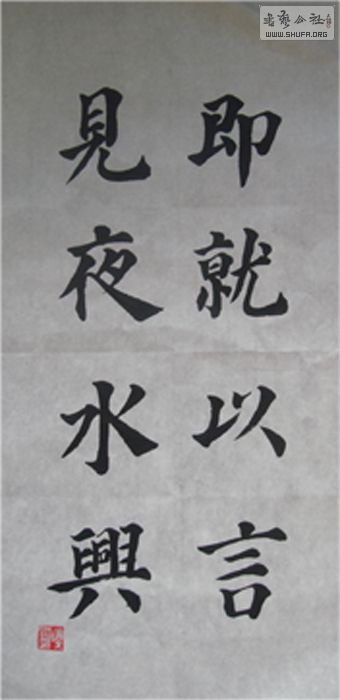 即就以言
見夜水興
書法公社
WWW.SHUFA.ORG